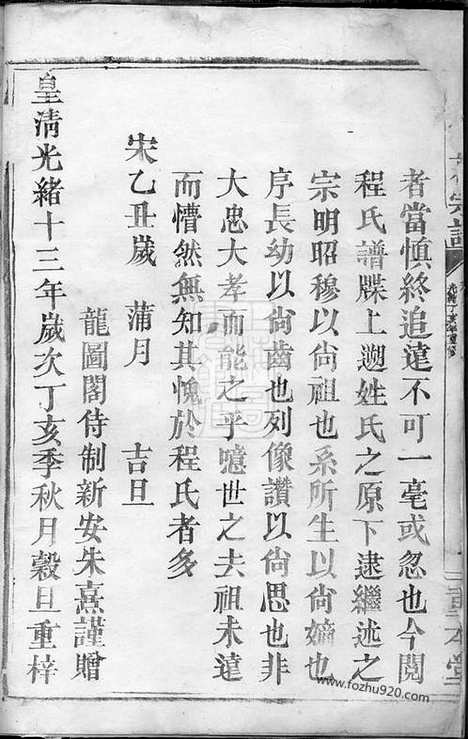 者當慎終追遠不可一毫或忽也今閲
程氏譜牒上遡姓氏之原下逮繼述之
宗明昭穆以尚祖也系所生以尚嫡也
序長幼以尚齒也列像讃以尚思也非
大忠大孝而能之乎噫世之去祖未遠
而懵然無知其愧於程氏者多
宋乙丑歲 蒲月 吉旦
龍圖閣待制新安朱熹謹贈
皇清光緒十三年歲次丁亥季秋月穀旦重梓
www.fozhu920.com